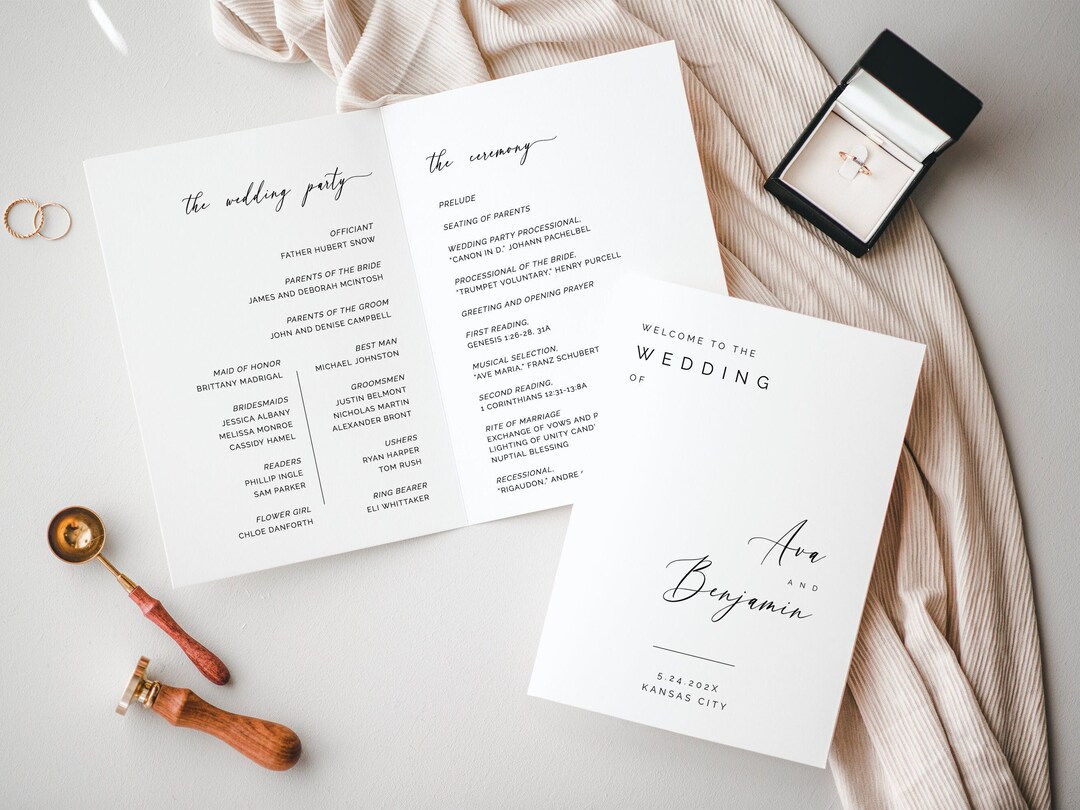 the wedding party
OFFICIANT
FATHER HUBERT SNOW
PARENTS OF THE BRIDE
JAMES AND DEBORAH MCINTOSH
PARENTS OF THE GROOM
JOHN AND DENISE CAMPBELL
MAID OF HONOR
BRITTANY MADRIGAL
BRIDESMAIDS
JESSICA ALBANY
MELISSA MONROE
CASSIDY HAMEL
READERS
PHILLIP INGLE
SAM PARKER
FLOWER GIRL
CHLOE DANFORTH
BEST MAN
MICHAEL JOHNSTON
GROOMSMEN
JUSTIN BELMONT
NICHOLAS MARTIN
ALEXANDER BRONT
USHERS
RYAN HARPER
TOM RUSH
RING BEARER
ELI WHITTAKER
the ceremony
PRELUDE
SEATING OF PARENTS
WEDDING PARTY PROCESSIONAL,
"CANON IN D," JOHANN PACHELBEL
PROCESSIONAL OF THE BRIDE,
"TRUMPET VOLUNTARY," HENRY PURCELL
GREETING AND OPENING PRAYER
FIRST READING,
GENESIS 1:26-28, 31A
MUSICAL SELECTION,
"AVE MARIA," FRANZ SCHUBERT
SECOND READING,
1 CORINTHIANS 12:31-13:8A
RITE OF MARRIAGE
EXCHANGE OF VOWS AND
LIGHTING OF UNITY
NUPTIAL BLESSING
RECESSIONAL,
"RIGAUDON," ANDRE
WELCOME TO THE
WEDDING
OF
Ava
AND
Benjamin
5.24.202X
KANSAS CITY